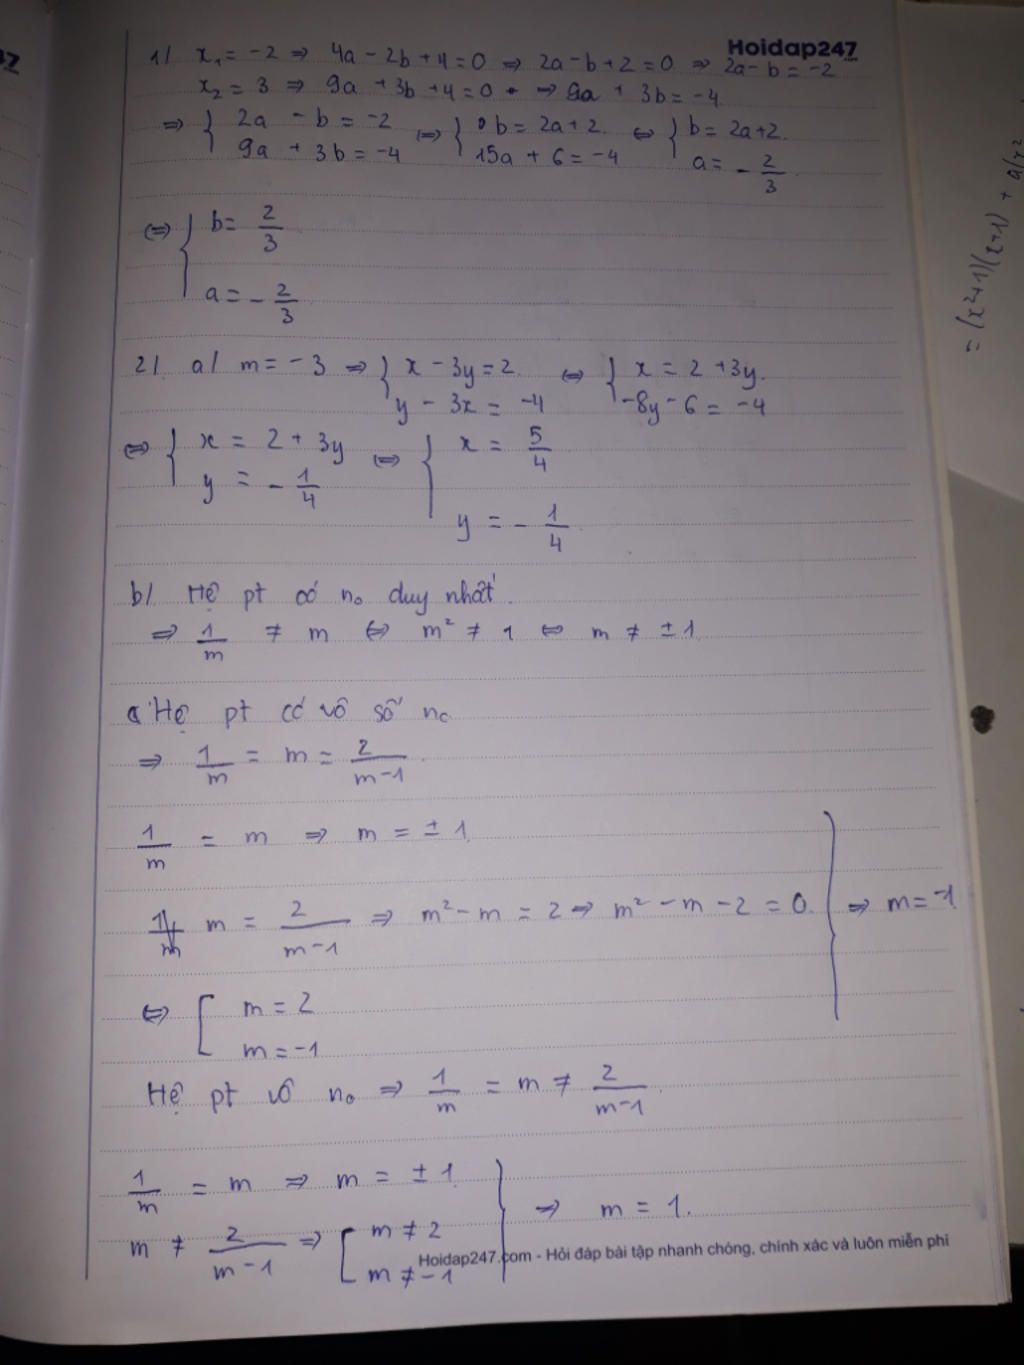 Hoidap247
1/ x₁ = -2 ⇒ 4a - 2b + 4 = 0 ⇒ 2a - b + 2 = 0 ⇒ 2a - b = -2
x₂ = 3 ⇒ 9a + 3b + 4 = 0 ⇒ 9a + 3b = -4
⇒ { 2a - b = -2 ⇔ { b = 2a + 2 ⇔ { b = 2a + 2
9a + 3b = -4 15a + 6 = -4 a = -2/3
⇔ { b = 2/3
a = -2/3
2/ a/ m = -3 ⇒ { x - 3y = 2 ⇔ { x = 2 + 3y
y - 3x = -4 -8y - 6 = -4
⇔ { x = 2 + 3y ⇔ { x = 5/4
y = -1/4
y = -1/4
b/ Hệ pt có n₀ duy nhất.
⇒ 1/m ≠ m ⇔ m² ≠ 1 ⇔ m ≠ ±1
Hệ pt có vô số n₀
⇒ 1/m = m = 2/(m-1)
1/m = m ⇒ m = ±1
m = 2/(m-1) ⇒ m² - m = 2 ⇒ m² - m - 2 = 0 } ⇒ m = -1
⇔ [ m = 2
m = -1
Hệ pt vô n₀ ⇒ 1/m = m ≠ 2/(m-1)
1/m = m ⇒ m = ±1 } ⇒ m = 1.
m ≠ 2/(m-1) ⇒ [ m ≠ 2
m ≠ -1
Hoidap247.com - Hỏi đáp bài tập nhanh chóng, chính xác và luôn miễn phí
= (x²+1)(x+1) + a(x²